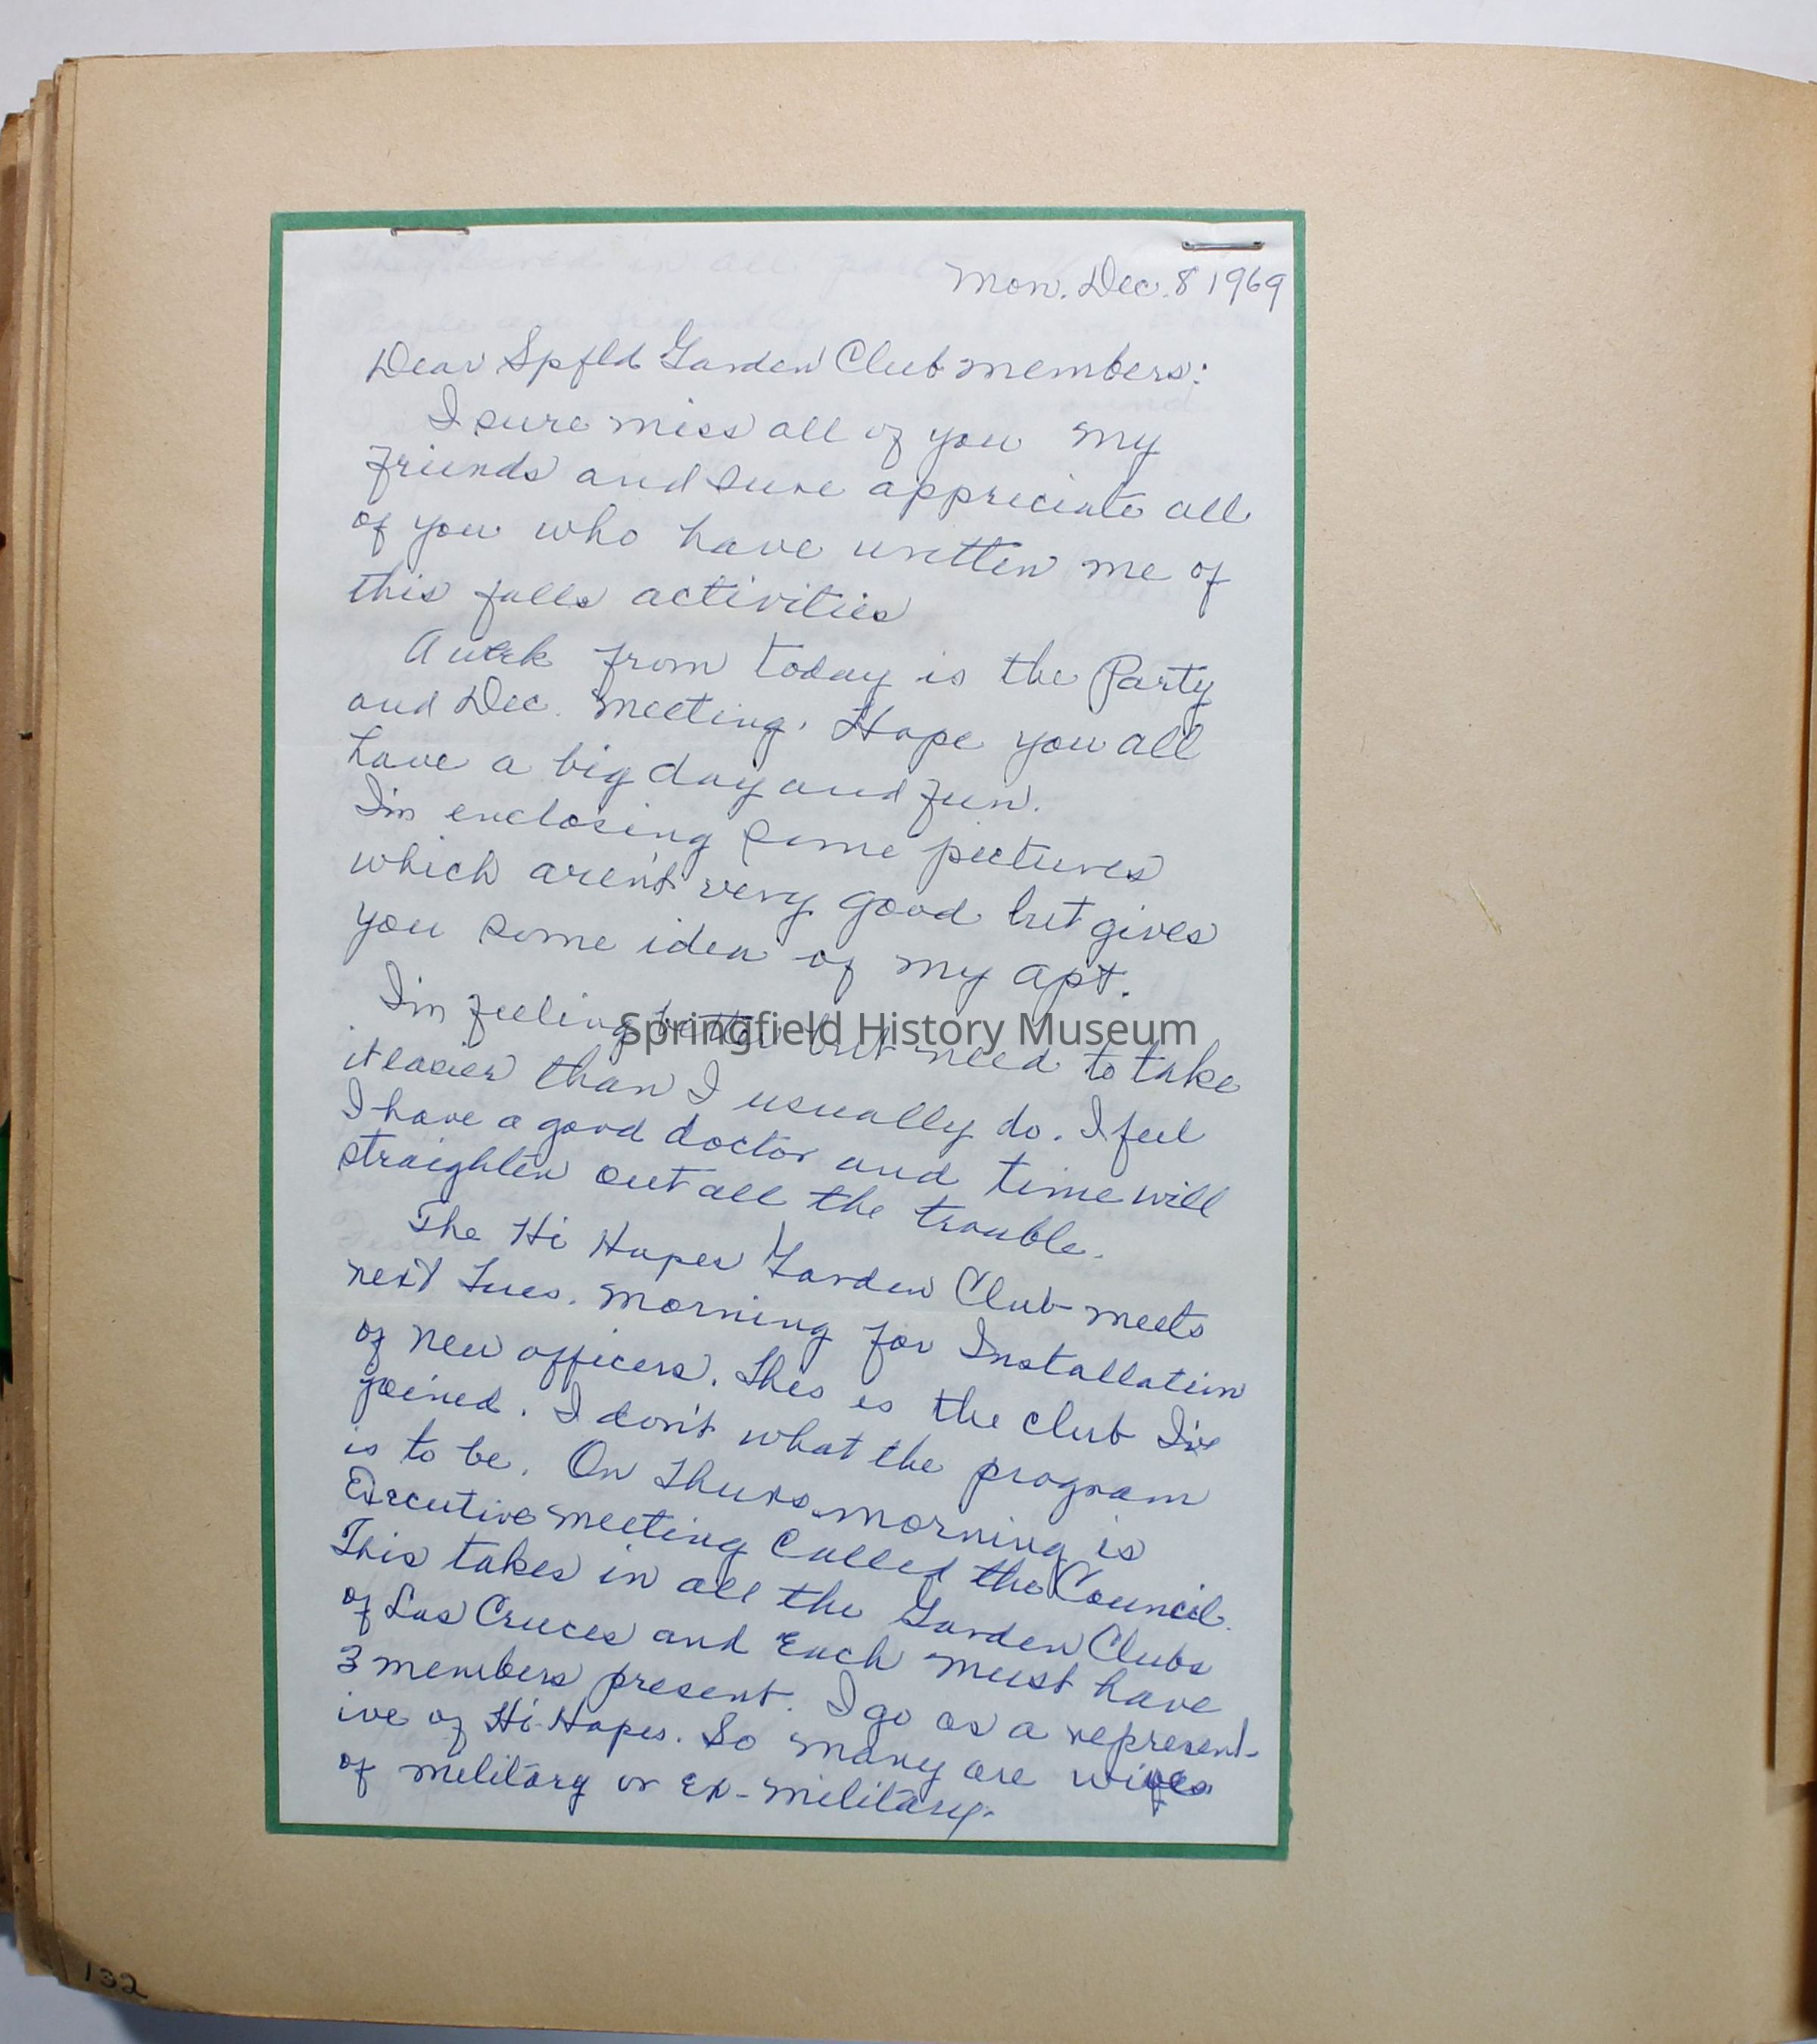 Mon. Dec. 8 1969
Dear Spfld Garden Club members:
I sure miss all of you my
friends and sure appreciate all
of you who have written me of
this falls activities
A week from today is the Party
and Dec. meeting. Hope you all
have a big day and fun.
I'm enclosing some pictures
which aren't very good but gives
you some idea of my apt.
I'm feeling better but need to take
it easier than I usually do. I feel
I have a good doctor and time will
straighten out all the trouble.
The Hi Hopes Garden Club meets
next Tues. morning for Installation
of new officers. This is the club I've
joined. I don't what the program
is to be. On Thurs. morning is
Executive meeting called the Council.
This takes in all the Garden Clubs
of Las Cruces and each must have
3 members present. I go as a represent-
ive of Hi-Hopes. So many are wifes
of military or ex-military.
Springfield History Museum
132